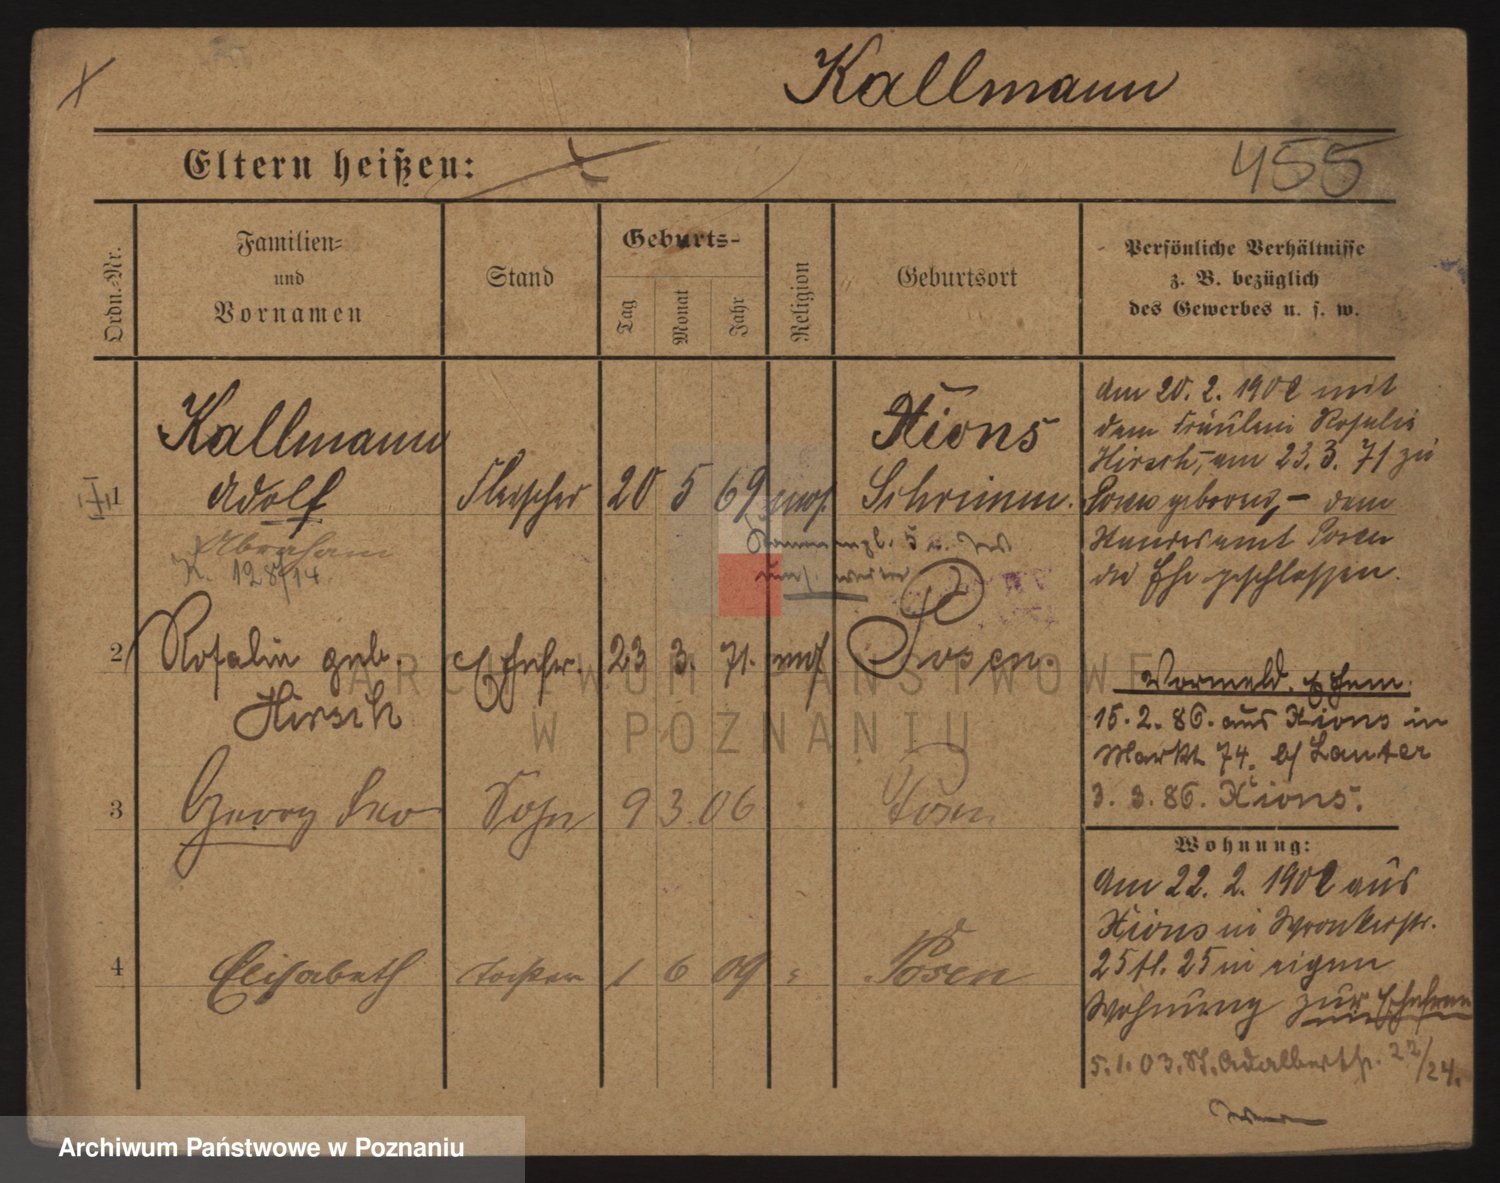 Kallmann
Eltern heißen:
455
Ordn.-Nr.
Familien-
und
Vornamen
Stand
Geburts-
Tag
Monat
Jahr
Religion
Geburtsort
Persönliche Verhältnisse
z. B. bezüglich
des Gewerbes u. s. w.
1
Kallmann
Adolf
Abraham
K. 128/14
Fleischer
20 5 69 mos.
Xions
Schrimm.
2
Rosalie geb.
Hirsch
Ehefr.
23 3. 71. mos.
Posen.
3
Georg Leo
Sohn
9 3 06
Posen
4
Elisabeth
Tochter
1 6 09 "
Posen
Am 20. 2. 1902 mit
dem Fräulein Rosalie
Hirsch, am 23. 3. 71 zu
Posen geboren, – dem
Standesamt Posen
die Ehe geschlossen.
Vormeld. Ehem.
15. 2. 86. aus Xions in
Markt 74. b/ Lauter
3. 3. 86. Xions.
Wohnung:
Am 22. 2. 1902 aus
Xions in Wronkerstr.
25 tl. 25 in eigen
Wohnung zur Ehefrau
5. 1. 03. St. Adalbertstr. 22/24.
ARCHIWUM PAŃSTWOWE
W POZNANIU
Archiwum Państwowe w Poznaniu